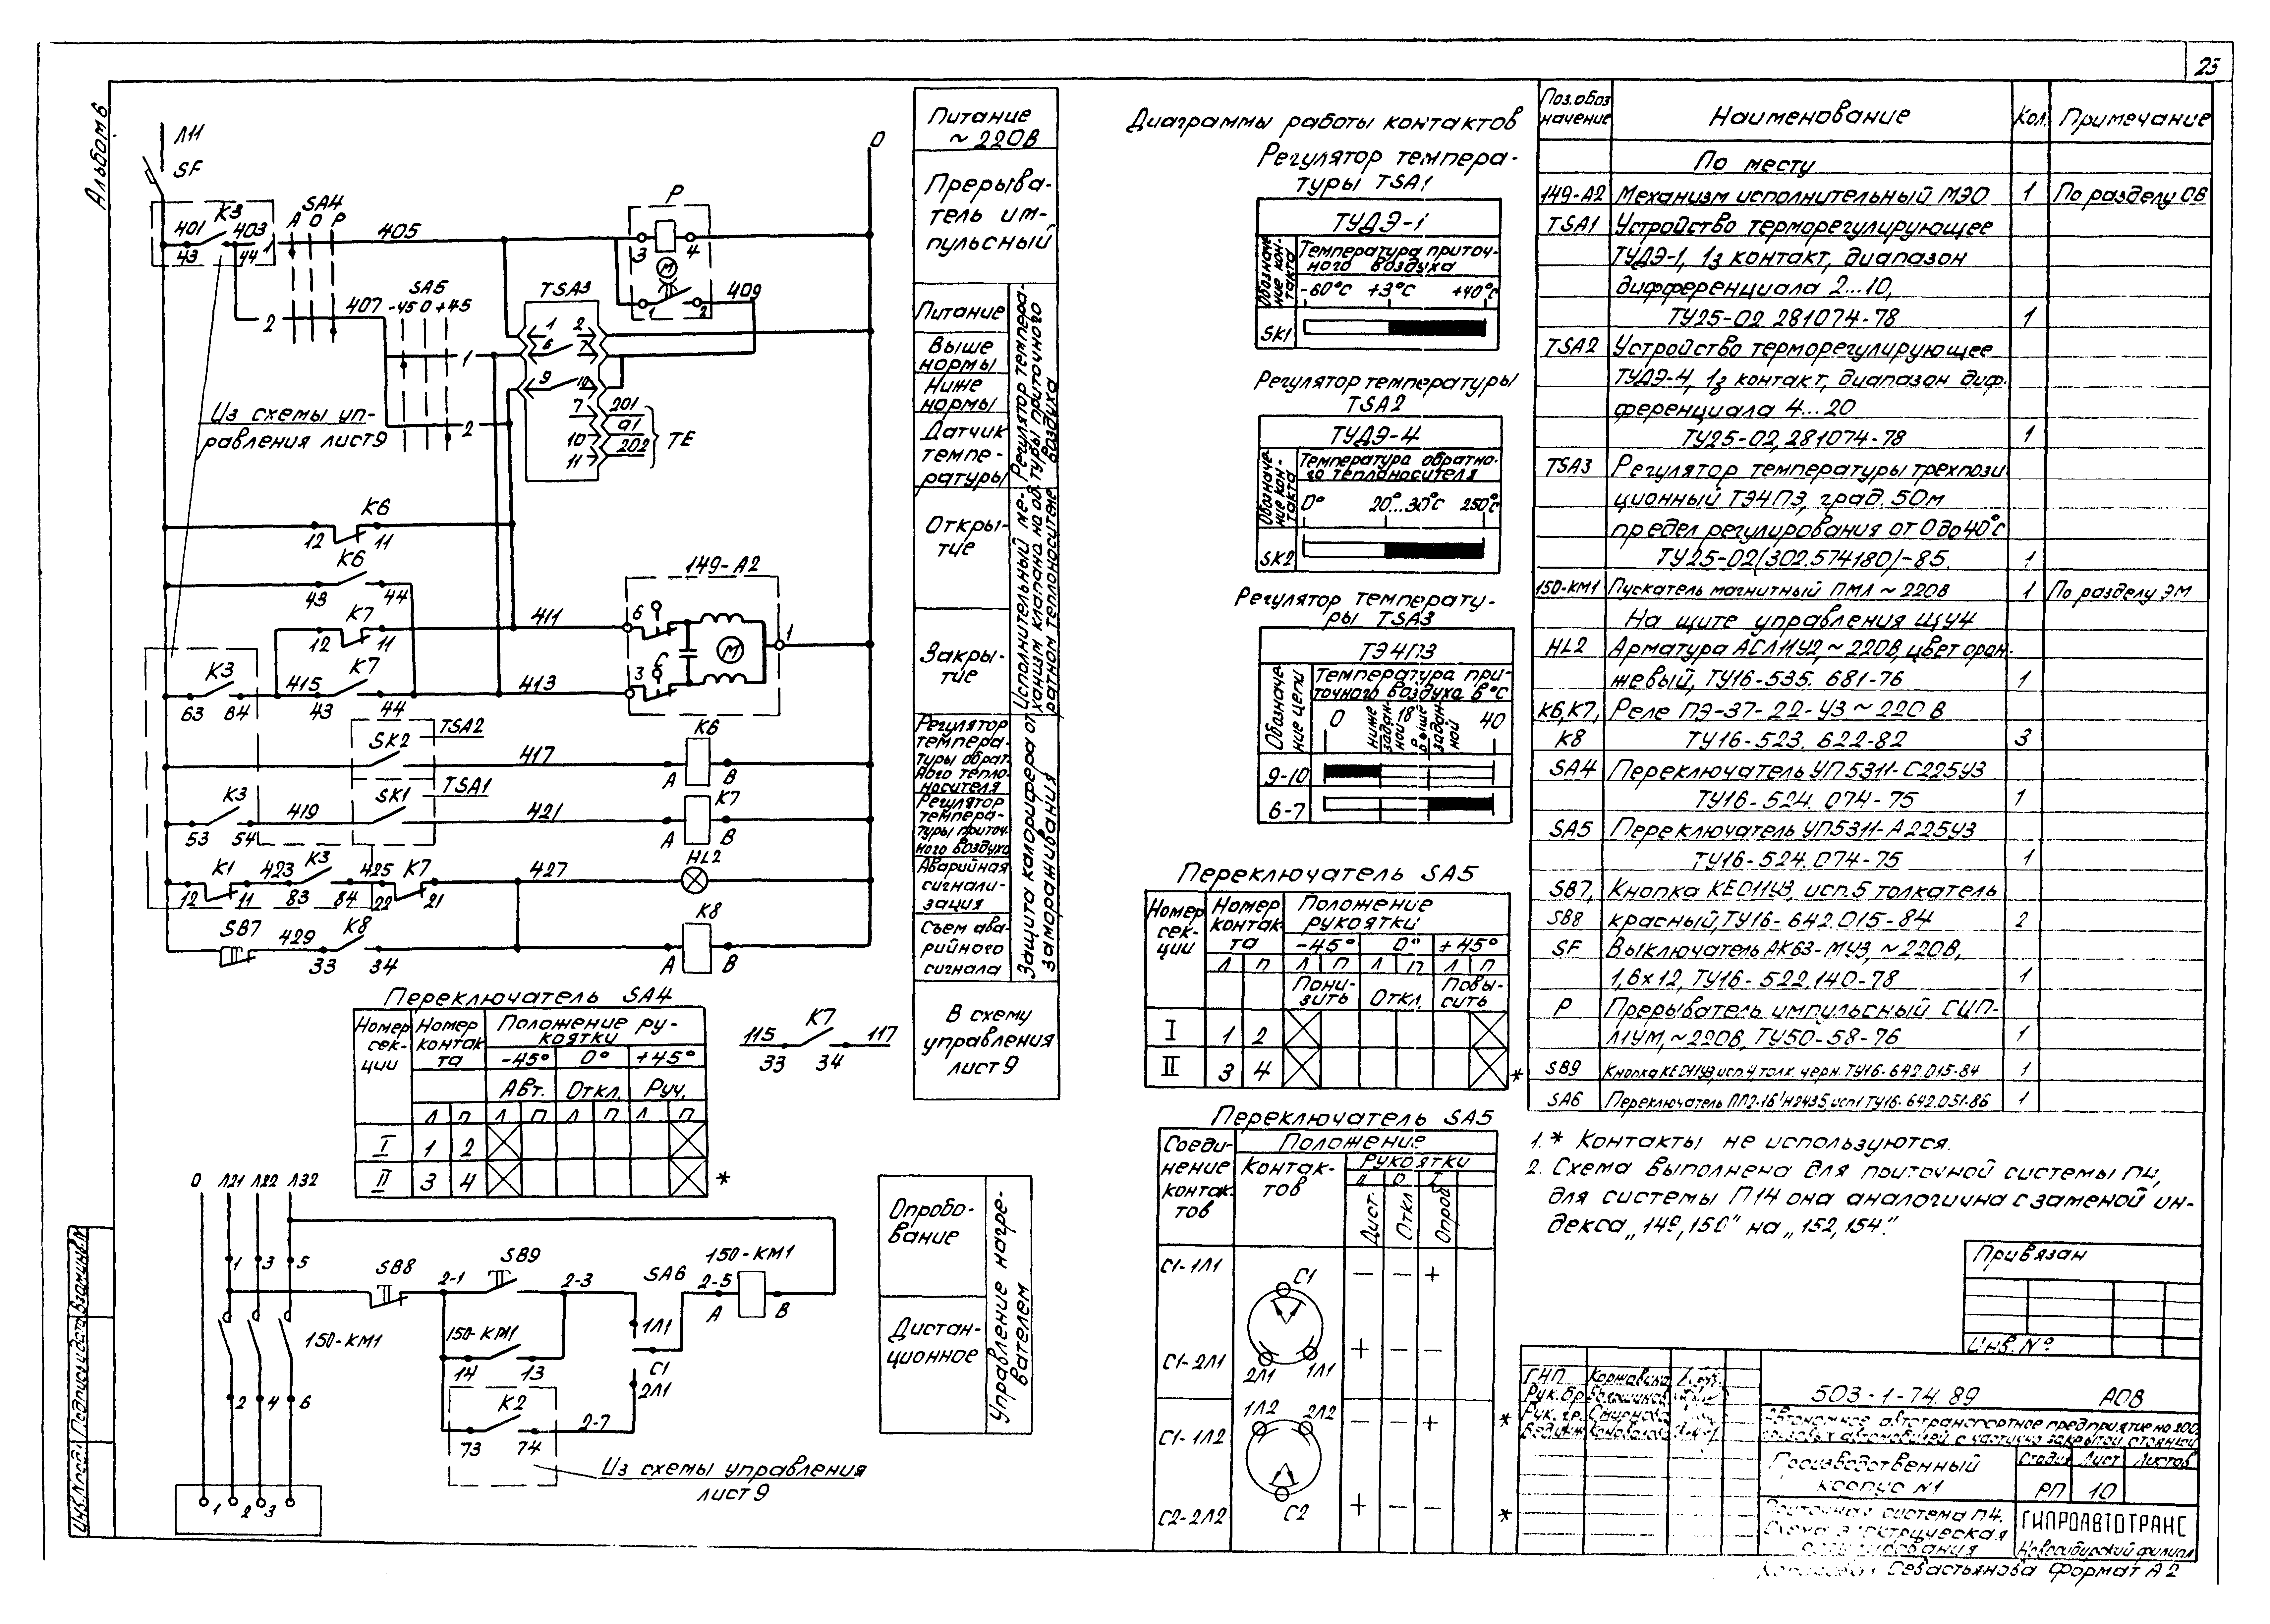 25
Альбом 6
Л11
SF
0
К3
401
403
43
44
SA4
А О Р
1
405
2
407
SA5
-45 0 +45
1
2
Р
3
4
М
1
2
409
TSA3
1
2
6
7
9
10
7
201
91
10
202
11
ТЕ
Из схемы уп-
равления лист 9
К6
12
11
К6
43
44
К7
12
11
411
149-А2
6
3
М
1
К3
63
64
415
К7
43
44
413
TSA2
SK2
417
К6
А
В
TSA1
К3
53
54
419
SK1
421
К7
А
В
К1
12
11
423
К3
83
84
425
К7
22
21
427
HL2
SB7
429
К8
33
34
К8
А
В
Питание
~ 220В
Прерыва-
тель им-
пульсный
Питание
Выше
нормы
Ниже
нормы
Датчик
темпе-
ратуры
Регулятор темпера-
туры приточного
воздуха
Откры-
тие
Закры-
тие
Исполнительный ме-
ханизм клапана на об-
ратном теплоносителе
Регулятор
темпера-
туры обрат-
ного тепло-
носителя
Регулятор
темпера-
туры приточ-
ного воздуха
Аварийная
сигнали-
зация
Съем ава-
рийного
сигнала
Защита калорифера от
замораживания
В схему
управления
лист 9
115
К7
117
33
34
Переключатель SA4
Номер
сек-
ции
Номер
контак-
та
Положение ру-
коятки
-45° 0° +45°
Авт. Откл. Руч.
Л П Л П Л П Л П
I 1 2
II 3 4 *
0 Л21 Л22 Л32
1 3 5
150-КМ1
2 4 6
1 2 3
SB8
2-1
SB9
2-3
SA6
2-5
150-КМ1
А
В
150-КМ1
14
13
1Л1
С1
2Л1
К2
73
74
2-7
Из схемы управления
лист 9
Опробо-
вание
Дистан-
ционное
Управление нагре-
вателем
Диаграммы работы контактов
Регулятор темпера-
туры TSA1
ТУДЭ-1
Обозначе-
ние кон-
такта
Температура приточ-
ного воздуха
-60°С +3°С +40°С
SK1
Регулятор температуры
TSA2
ТУДЭ-4
Обозначе-
ние кон-
такта
Температура обратно-
го теплоносителя
0° 20°...30°С 250°С
SK2
Регулятор температу-
ры TSA3
ТЭ4П3
Обозначе-
ние цепи
Температура при-
точного воздуха в °С
0
ниже
задан-
ной
18
выше
задан-
ной
40
9-10
6-7
Переключатель SA5
Номер
сек-
ции
Номер
контак-
та
Положение
рукоятки
-45° 0° +45°
Л П Л П Л П Л П
Пони-
зить
Откл.
Повы-
сить
I 1 2
II 3 4 *
Переключатель SA5
Соеди-
нение
контак-
тов
Контак-
тов
Положение
Рукоятки
Дист.
Откл
Опроб
С1-1Л1 — — +
С1
2Л1
1Л1
С1-2Л1 + — —
1Л2
2Л2
С1-1Л2 — — + *
С2
С2-2Л2 + — — *
Поз. обоз
начение
Наименование
Кол.
Примечание
По месту
149-А2 Механизм исполнительный МЭО 1 По разделу ОВ
TSA1 Устройство терморегулирующее
ТУДЭ-1, 1з контакт, диапазон
дифференциала 2...10,
ТУ25-02 281074-78 1
TSA2 Устройство терморегулирующее
ТУДЭ-4, 1з контакт, диапазон диф-
ференциала 4...20
ТУ25-02, 281074-78 1
TSA3 Регулятор температуры трехпози
ционный ТЭ4П3, град. 50м
предел регулирования от 0 до 40°С
ТУ25-02(302.574180)-85. 1
150-КМ1 Пускатель магнитный ПМЛ ~ 220В 1 По разделу ЭМ
На щите управления ЩУ4
HL2 Арматура АСЛ11У2, ~ 220В, цвет оран-
жевый, ТУ16-535. 681-76 1
К6,К7, Реле ПЭ-37-22-У3 ~ 220 В
К8 ТУ16-523. 622-82 3
SA4 Переключатель УП5311-С225У3
ТУ16-524. 074-75 1
SA5 Переключатель УП5311-А225У3
ТУ16-524.074-75 1
SB7, Кнопка КЕ011У3, исп.5 толкатель
SB8 красный, ТУ16-642.015-84 2
SF Выключатель АК63-МУ3, ~220В,
1,6х12, ТУ16-522.140-78 1
Р Прерыватель импульсный СИП-
Л1УМ, ~220В, ТУ50-58-76 1
SB9 Кнопка КЕ011У3, исп.4 толк. черн. ТУ16-642.015-84 1
SA6 Переключатель ПП2-16/Н2435 исп1 ТУ16-642.051-86 1
1. * Контакты не используются.
2. Схема выполнена для приточной системы П4,
для системы П14 она аналогична с заменой ин-
декса „149, 150" на „152, 154."
Привязан
Инв. №
ГИП Коржавина
Рук.бр
Рук.гр. Смирнова
Вед.инж Коновалова
503-1-74.89 АОВ
Автономное автотранспортное предприятие на 200
грузовых автомобилей с частично закрытой стоянкой
Производственный
корпус №1
Стадия Лист Листов
РП 10
Приточная система П4.
Схема электрическая
ГИПРОАВТОТРАНС
Новосибирский филиал
Севастьянова Формат А2
Инв.№подл. Подпись и дата Взам.инв.№